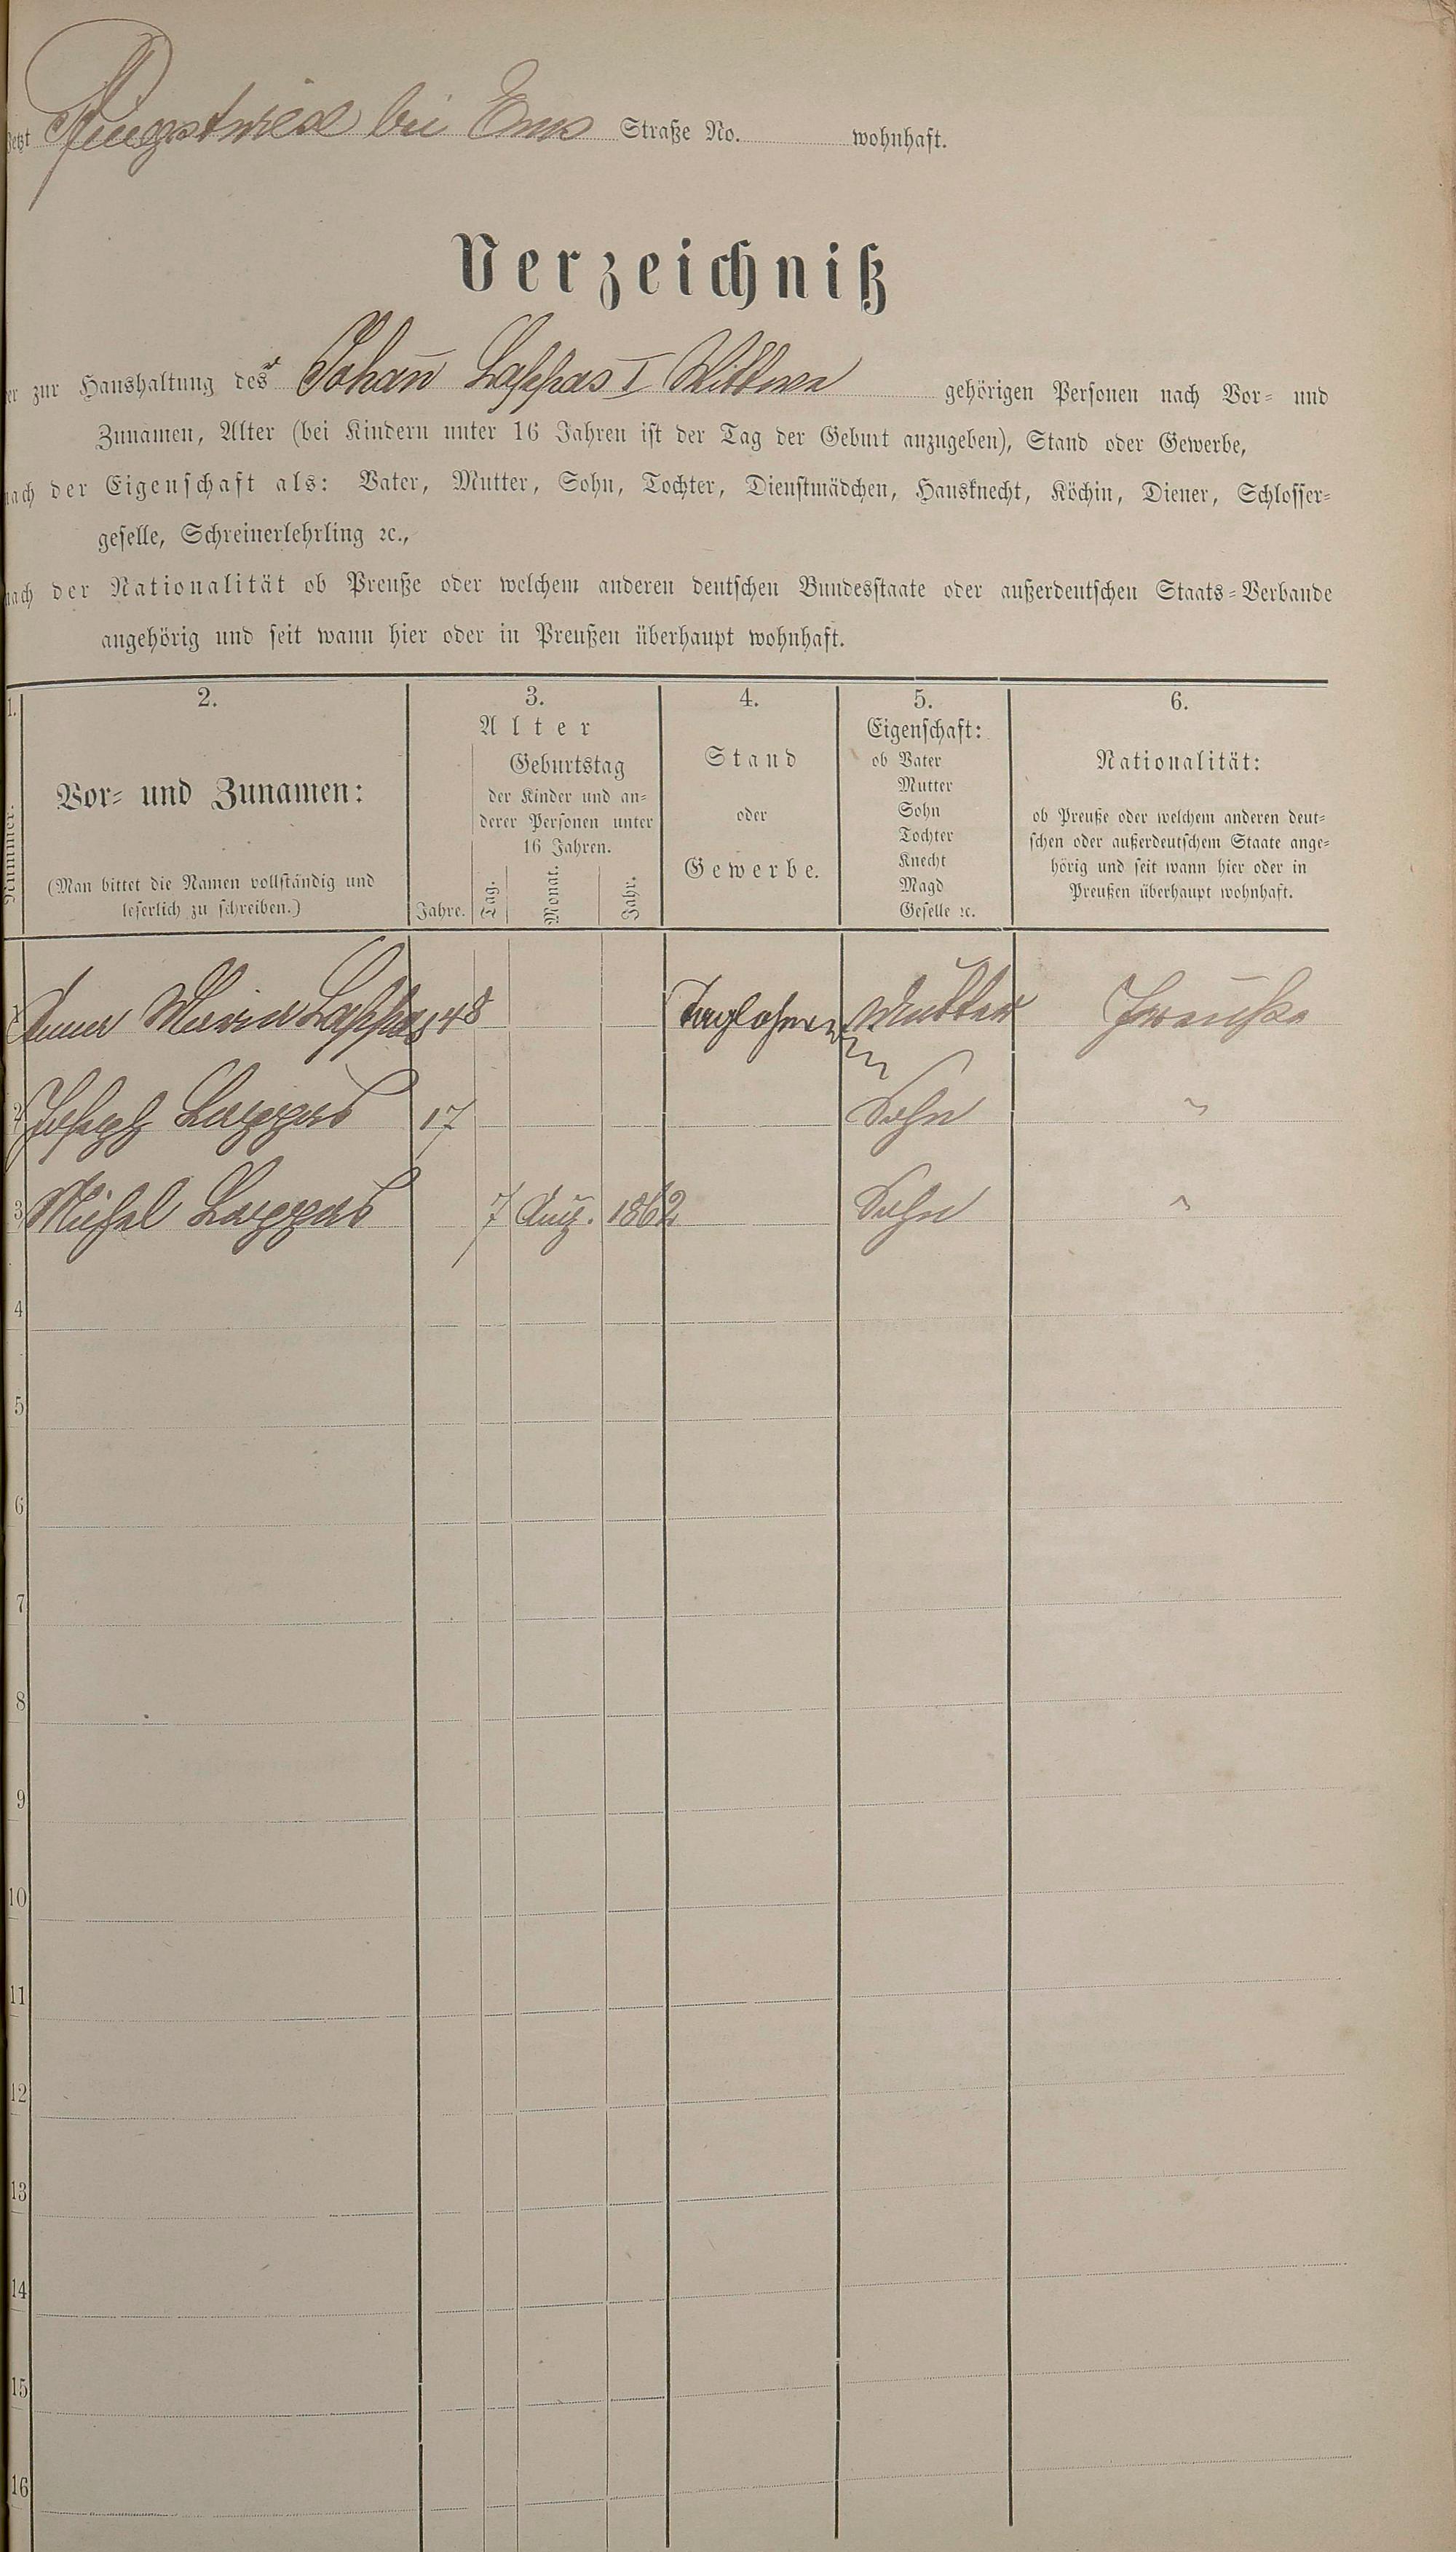 Jetzt Pfingstwiese bei Ems Straße No. wohnhaft.
Verzeichniß
der zur Haushaltung der Johann Lappas I Wittwe gehörigen Personen nach Vor- und
Zunamen, Alter (bei Kindern unter 16 Jahren ist der Tag der Geburt anzugeben), Stand oder Gewerbe,
nach der Eigenschaft als: Vater, Mutter, Sohn, Tochter, Dienstmädchen, Hausknecht, Köchin, Diener, Schlosser-
geselle, Schreinerlehrling ꝛc.,
nach der Nationalität ob Preuße oder welchem anderen deutschen Bundesstaate oder außerdeutschen Staats-Verbande
angehörig und seit wann hier oder in Preußen überhaupt wohnhaft.
1.
Nummer.
2.
Vor- und Zunamen:
(Man bittet die Namen vollständig und
leserlich zu schreiben.)
3.
Alter
Jahre.
Geburtstag
der Kinder und an-
derer Personen unter
16 Jahren.
Tag. Monat. Jahr.
4.
Stand
oder
Gewerbe.
5.
Eigenschaft:
ob Vater
Mutter
Sohn
Tochter
Knecht
Magd
Geselle ꝛc.
6.
Nationalität:
ob Preuße oder welchem anderen deut-
schen oder außerdeutschem Staate ange-
hörig und seit wann hier oder in
Preußen überhaupt wohnhaft.
1 Anna Maria Lappas 48 Taglöhnerin Mutter Preuße
2 Joseph Lappas 17 Sohn "
3 Michel Lappas 7 Aug. 1862 Sohn "
4
5
6
7
8
9
10
11
12
13
14
15
16